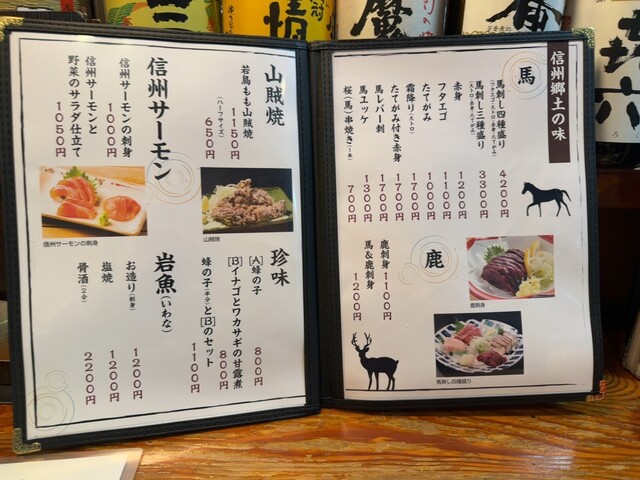 信州郷土の味
馬
馬刺し四種盛り 4200円
(フタエゴ・大トロ・赤身・たてがみ)
馬刺し三種盛り 3300円
(大トロ・赤身・たてがみ)
赤身 1200円
フタエゴ 1100円
たてがみ 1000円
霜降り(大トロ) 1700円
たてがみ付き赤身 1700円
馬レバー刺 1700円
馬ユッケ 1300円
桜(馬)串焼き(一本) 700円
鹿
鹿刺身 1100円
馬&鹿刺身 1200円
鹿刺身
馬刺し四種盛り
山賊焼
若鳥もも山賊焼 1150円
(ハーフサイズ) 650円
山賊焼
信州サーモン
信州サーモンの刺身 1000円
信州サーモンと
野菜のサラダ仕立て 1050円
信州サーモンの刺身
珍味
[A]蜂の子 800円
[B]イナゴとワカサギの甘露煮 800円
蜂の子(半分)と[B]のセット 1100円
岩魚(いわな)
お造り(刺身) 1200円
塩焼 1200円
骨酒(2合) 2200円